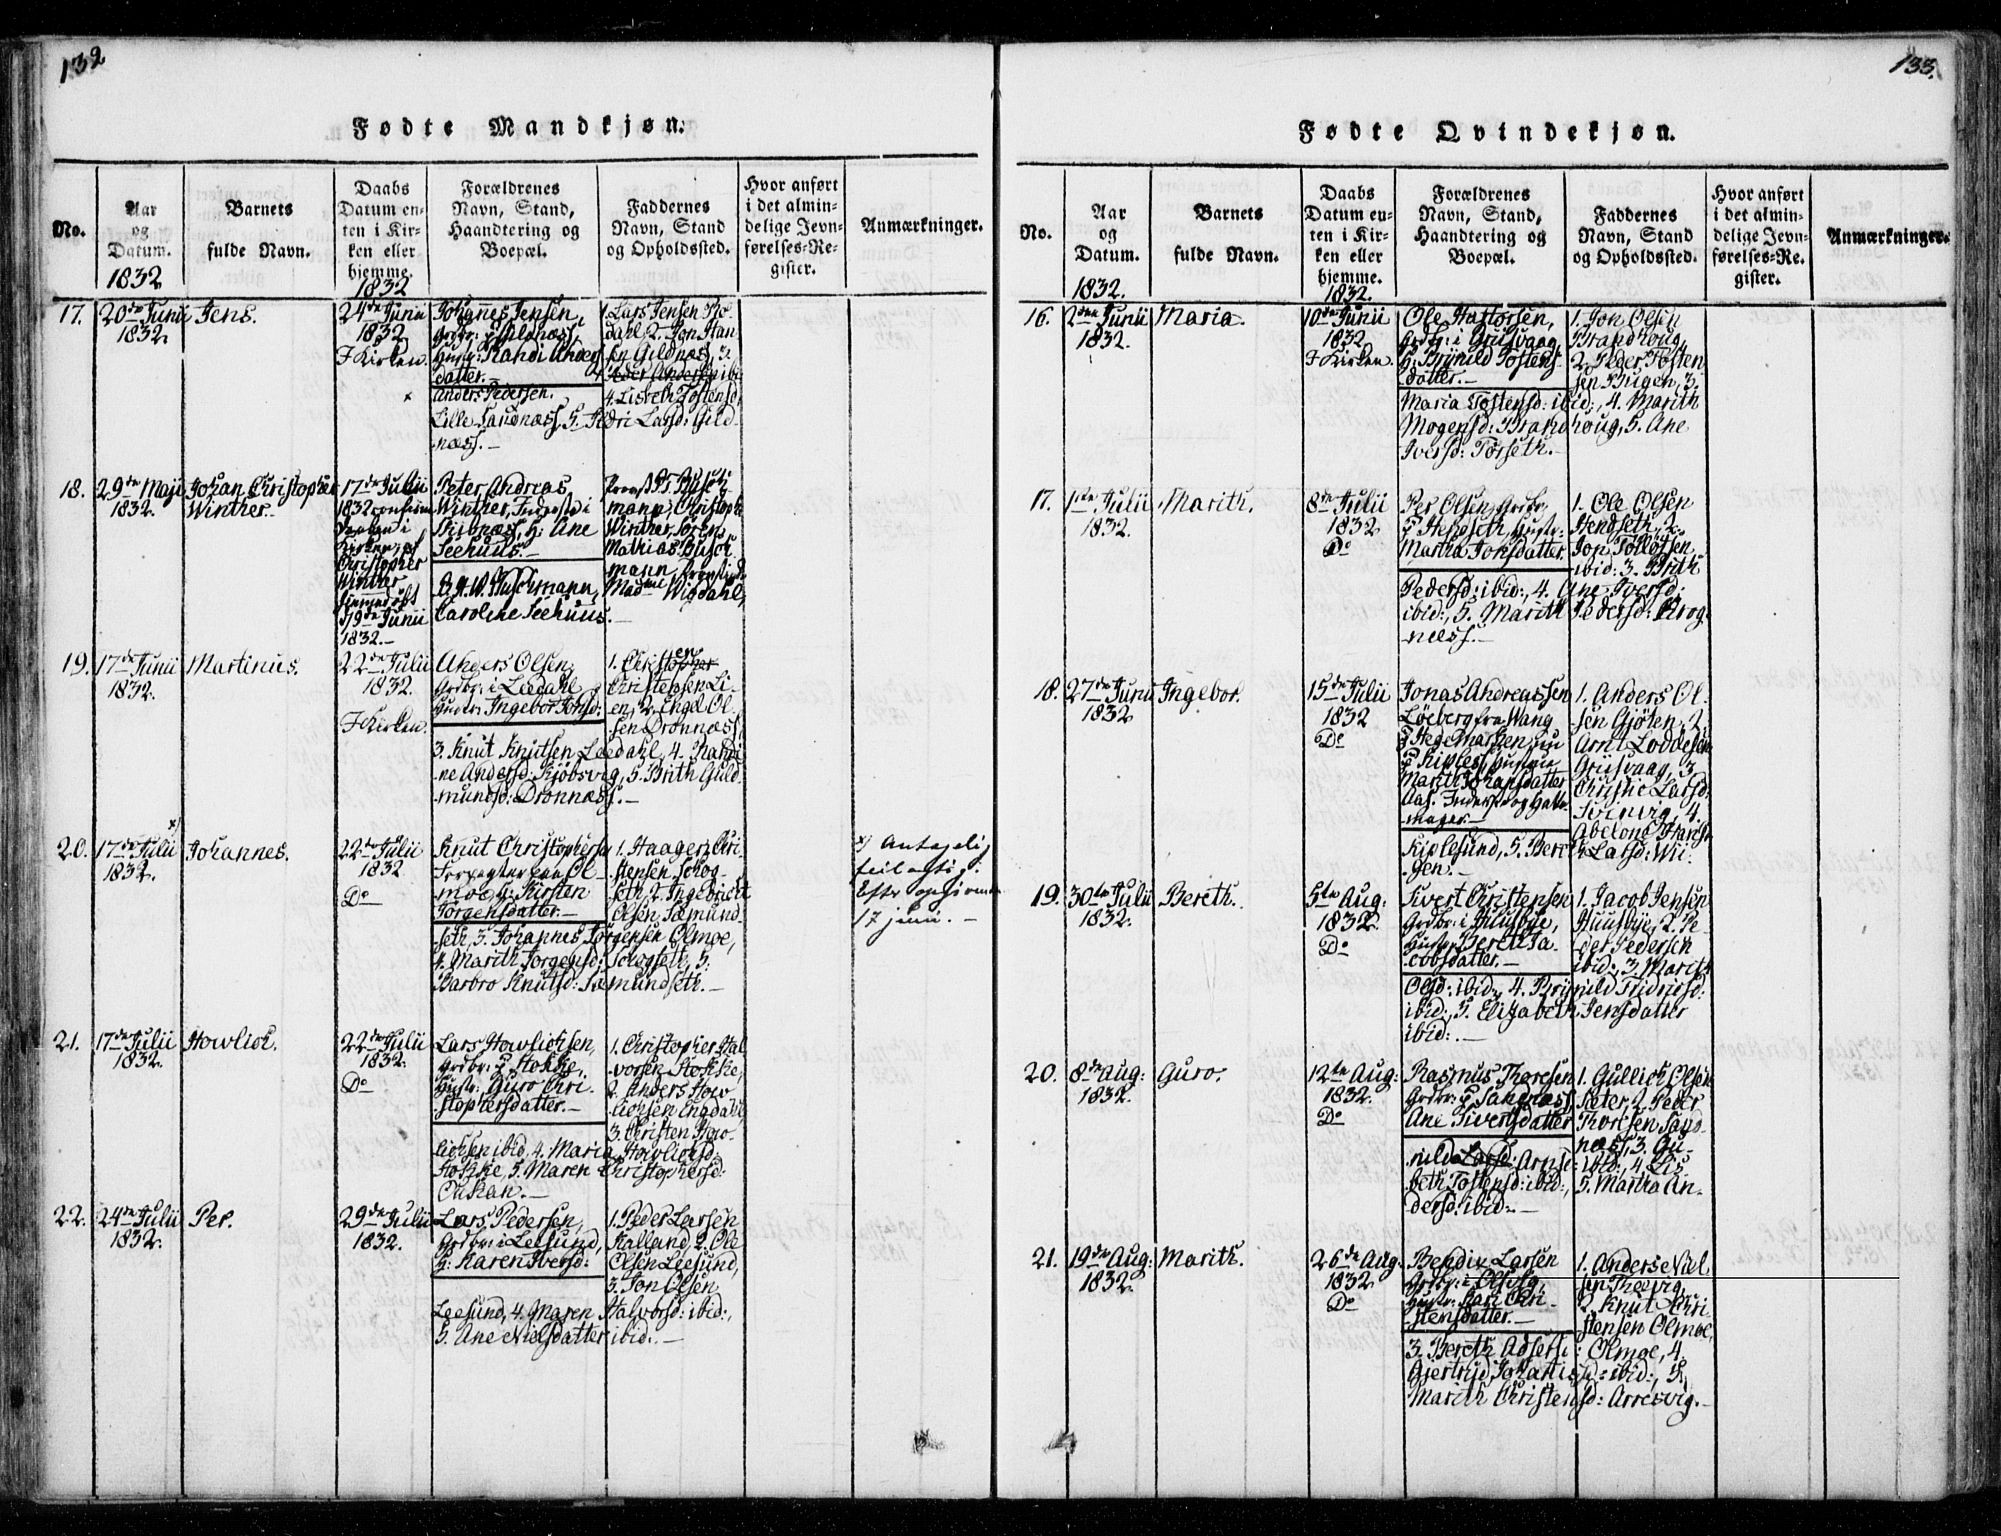 132
Fødte Mandkjøn.
No.
Aar
og
Datum.
1832
Barnets
fulde Navn.
Daabs
Datum en-
ten i Kir-
ken eller
hjemme.
1832
Forældrenes
Navn, Stand,
Haandtering og
Boepæl.
Faddernes
Navn, Stand
og Opholdssted.
Hvor anført
i det almin-
delige Jevn-
førelses-Re-
gister.
Anmærkninger.
17.
20de Junii
1832.
Jens.
24de Junii
1832
I Kirken.
Johannes Jensen,
Grdbr: i Gildnæss,
Hustr: Randi Anders-
datter.-
1. Lars Jensen
dahl, 2. Jon Han
sen Gildnæss, 3.
Peder Andersen ibid
Anders Pedersen.
4. Lisbeth Tostensd:
Lille Sandnæss, 5. Sidri Larsd: Gild-
næss.-
18.
29de Maji
1832.
Johan Christopher
Winther.
17de Julii
1832
Daaben i
Kirken, af
Christopher
Winther
hjemmedøbt
19de Junii
1832.-
Peter Andreas
Winther, Inderst i
H: Ane
Seehuus.-
Provst Busch
mann, Christoph
Winther, Søren
Mathias Busch
mann,
Madme Wigdahl,
Buschmann,
Caroline Seehuus.-
19.
17de Junii
1832.
Martinus.
22de Julii
1832.
I Kirken.
Anders Olsen,
Grdbr: i Leedahl,
Hustr: Ingebor Jonsd:
1. Christen
Christensen Li-
en, 2. Engel Ol-
sen Drønnæss,
3. Knut Knutsen Leedahl, 4. Randi-
ne Andersd: Kjøbsvig, 5. Brith Guld-
mundsd: Drønnæss.-
20.
17de Julii x)
1832.
Johannes.
22de Julii
1832
Do
Knut Christophersen
Forpagter paa Ol-
moe, H: Kirsten
Jørgensdatter.-
1. Haagen Chri-
stensen Schog-
seth, 2. Ingebricht
Olsen Sæmund-
seth, 3. Johannes Jørgensen Olmoe,
4. Marith Jørgensd: Schogseth, 5.
Barbro Knutsd: Sæmundseth.-
x) Antagelig
feilagtig.
Efter opgivende
17 juni.-
21.
17de Julii
1832.
Howlich.
22de Julii
1832.
Do
Lars Howlichsen,
Grdbr: i Stokke,
Hustr: Guro Chri-
stophersdatter.-
1. Christopher Hal
vorsen Stokke,
2. Anders How
lichsen Engdahl
3. Christen How-
lichsen ibid, 4. Maria Howlichsd:
Stokke, 5. Maren Christophersd:
22.
24de Julii
1832.
Per.
29de Julii
1832.
Lars Pedersen,
Grdbr: i Leesund,
H: Karen Iversd:
1. Peder Larsen
Kalland, 2. Ole
Olsen Leesund,
3. Jon Olsen
Leesund, 4. Maren Halvorsd: ibid:,
5. Ane Nielsdatter ibid:.-
133.
Fødte Qvindekjøn.
No.
Aar
og
Datum.
1832.
Barnets
fulde Navn.
Daabs
Datum en-
ten i Kir-
ken eller
hjemme.
1832.
Forældrenes
Navn, Stand,
Haandtering og
Boepæl.
Faddernes
Navn, Stand
og Opholdssted.
Hvor anført
i det almin-
delige Jevn-
førelses-Re-
gister.
Anmærkninger.
16.
2den Junii
1832.
Maria.
10de Junii
1832
I Kirken.
Ole Halvorsen,
Grdbr: i Griisvaag,
H: Brynild Tostens-
datter.-
1. Jon Olsen
Brandhoug,
2. Peder Tosten
sen Bugen, 3.
Maria Tostensd: ibid:, 4. Marith
Mogensd: Brandhoug, 5. Ane
Iversd: Torseth.-
17.
1ste Julii
1832.
Marith.
8de Julii
1832
Do
Per Olsen, Grdbr:
Hustr:
Martha Jonsdatter.
1. Ole Olsen
Hendseth, 2.
Jon Tollofsen,
ibid: 3. Brith
Pedersd: ibid:, 4. Ane Iversd:
ibid:, 5. Marith Pedersd: Krog-
næss.-
18.
27de Junii
1832
Ingebor.
15de Julii
1832
Do
Jonas Andreassen
Løeberg fra Wang
i Hedemarken, nu
i Kiplesd, Hustrue
Marith Johansdatter
Aas. Inderst og Hatte-
mager.-
1. Anders Ol-
sen Gjøten, 2.
Arnt Loddesen
Griisvaag, 3.
Christie Larsd:
4.
Abelone Hansd:
Kiplesund, 5. Bereth Larsd: Wi-
gen.-
19.
30te Julii
1832.
Bereth.
5te Aug:
1832
Do
Sivert Christensen
Grdbr: i Huusbye,
Hustr: Bereth Ja-
cobsdatter.-
1. Jacob Jensen
Huusbye, 2. Pe-
der Pedersen
ibid:, 3. Marith
Olsd: ibid:, 4. Brynild Fridrichsd:
ibid:, 5. Elizabeth Jensdatter
ibid:.-
20.
8de Aug:
1832.
Guro.
12te Aug:
1832.
Do
Rasmus Thoresen
Grdbr: i Sandnæss
Ane Sivertsdatter
1. Gullich Olsen
Sæter, 2. Peder
Thoresen Sand-
næss, 3. Gu-
nild Arnsd: ibid:, 4. Lis-
beth Tostensd: ibid:, 5. Martha An-
dersd: ibid:.-
21.
19de Aug:
1832.
Marith.
26de Aug:
1832
Do
Bendix Larsen
Grdbr: i Olsvig,
Hustr: Kari Chri-
stensdatter.-
1. Anders Niel
sen Thoevig,
2. Knut Chri
stensen Olmoe,
3. Bereth Adsersd: Olmoe, 4.
Gjertrud Johannesd: ibid:, 5.
Marith Christensd: Arresvig.-